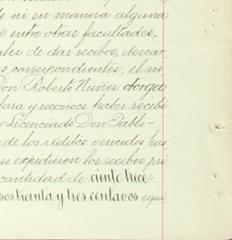 te ni en manera alguna
e entre otras facultades,
ales de dar recibos, descar
s correspondientes; el no
Don Roberto Nuñez otorga
lara y reconoce haber recibi
r Licenciado Don Pablo
y de los réditos vencidos has
se expidieron los recibos pri
cantidad de ciento trece
sos treinta y tres centavos equi